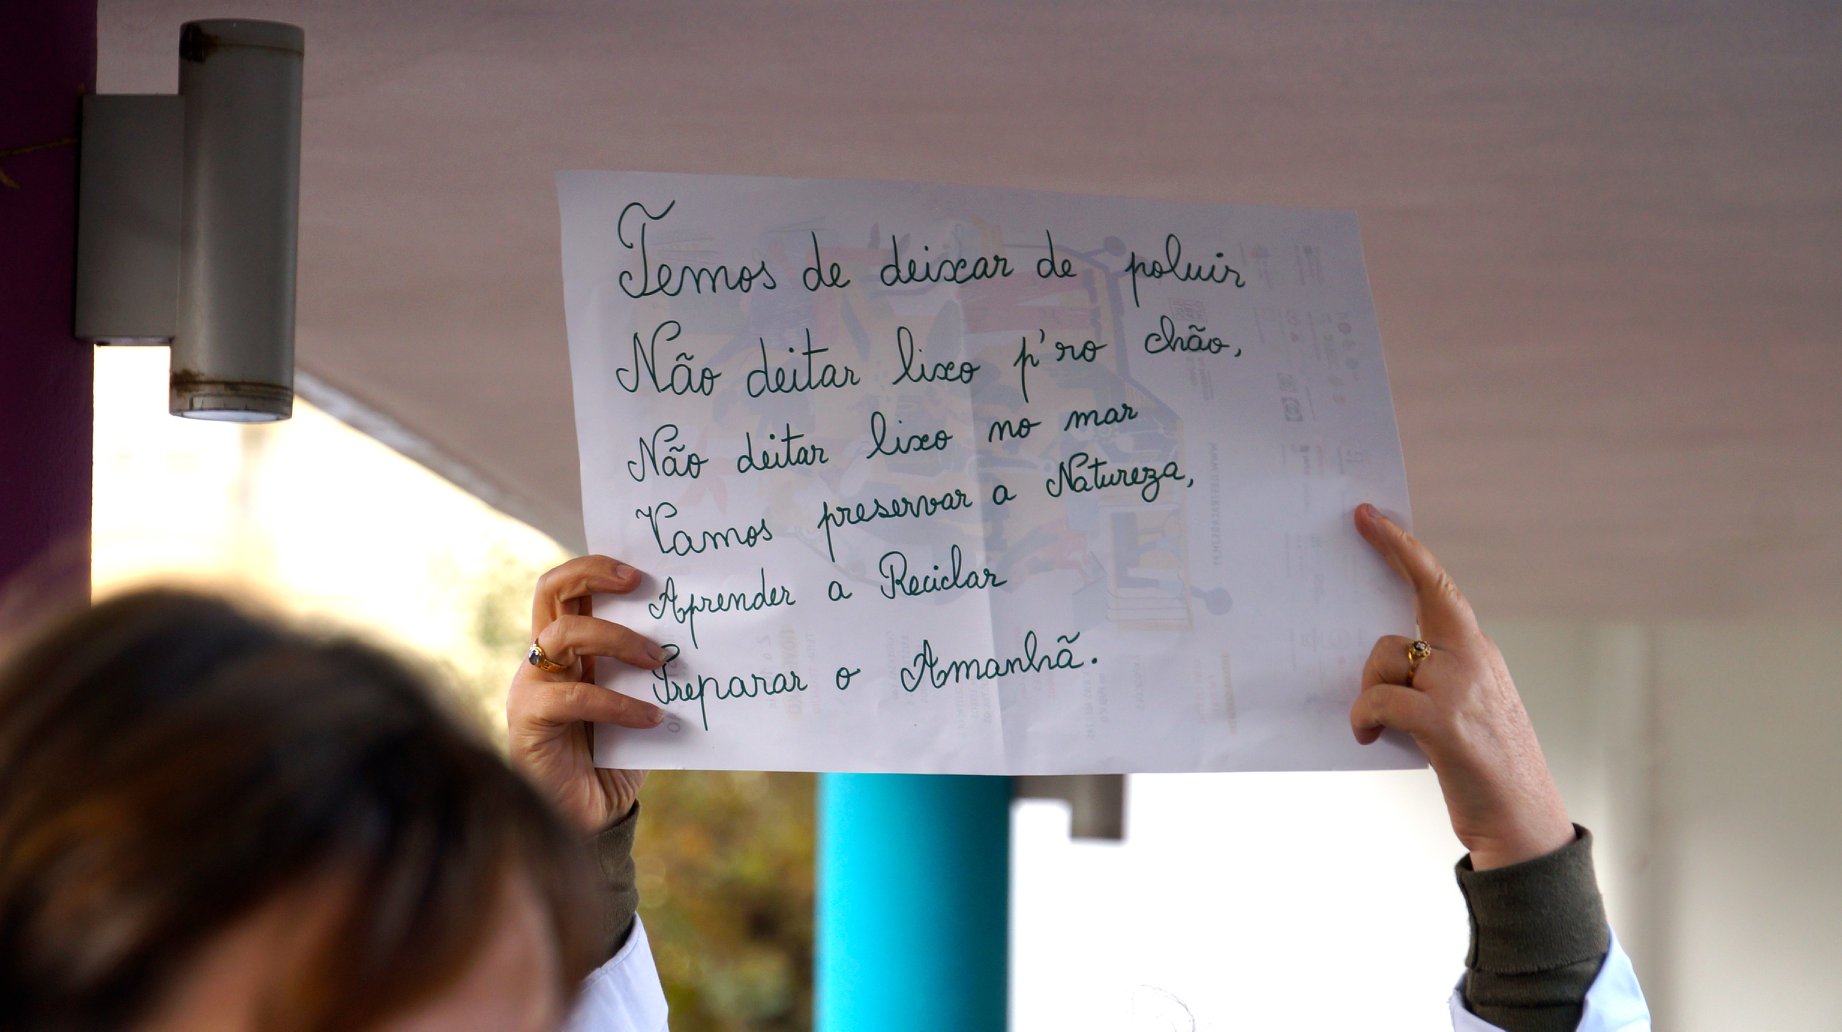 Temos de deixar de poluir
Não deitar lixo p'ro chão,
Não deitar lixo no mar
Vamos preservar a Natureza,
Aprender a Reciclar
Preparar o Amanhã.